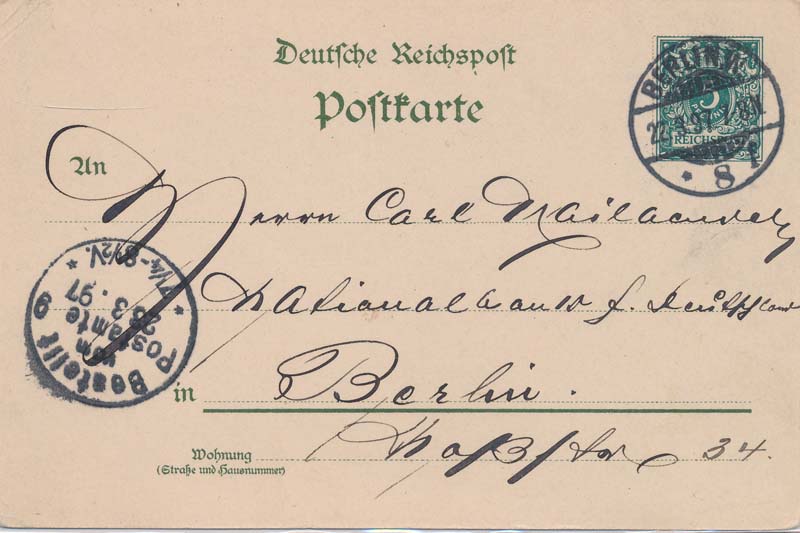 Deutsche Reichspost
Postkarte
BERLIN.W.
22.3.97
* 8
REICHSPOST
An
Herrn Carl Mailaender
Nationalbank f. Deutschland
in Berlin.
Wohnung
(Straße und Hausnummer)
Voßstr 34.
Bestellt
vom
Postamte 9
23.3.97
7¼-8½V.